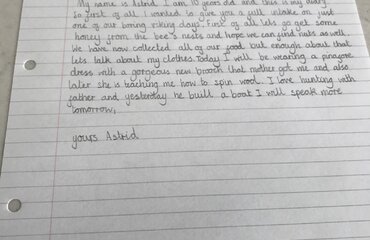 My name is Astrid. I am 10 years old and this is my diary
So first of all I wanted to give you a full intake on just
one of our boring viking days. First of all lets go get some
honey from the bee's nests and hope we can find nuts as well.
We have now collected all of our food but enough about that
lets talk about my clothes. Today I will be wearing a pinafore
dress with a gorgeous new brooch that mother got me and also
later she is teaching me how to spin wool. I love hunting with
father and yesterday he built a boat I will speak more
tomorrow,
yours Astrid